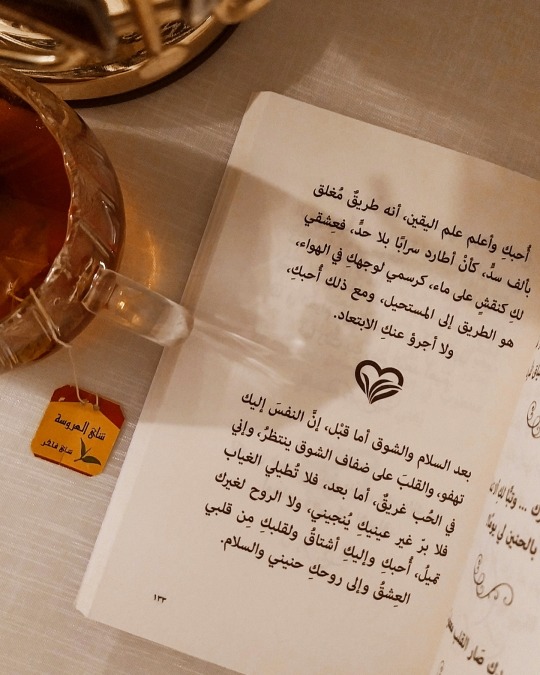 أُحبكِ وأعلم علم اليقين، أنه طريقٌ مُغلق
بألف سدٍّ، كأنْ أطارد سرابًا بلا حدٍّ، فعِشقي
لكِ كنقشٍ على ماء، كرسمي لوجهكِ في الهواء،
هو الطريق إلى المستحيل، ومع ذلك أُحبكِ،
ولا أجرؤ عنكِ الابتعاد.
بعد السلام والشوق أما قبْل، إنَّ النفسَ إليك
تهفو، والقلبَ على ضفاف الشوق ينتظرُ، وإني
في الحُب غريقٌ، أما بعد، فلا تُطيلي الغياب
فلا برّ غير عينيكِ يُنجيني، ولا الروح لغيرك
تميلُ، أُحبكِ وإليكِ أشتاقُ ولقلبكِ مِن قلبي
العِشقُ وإلى روحكِ حنيني والسلام.
١٣٣
شاي العروسة
شاي فاخر